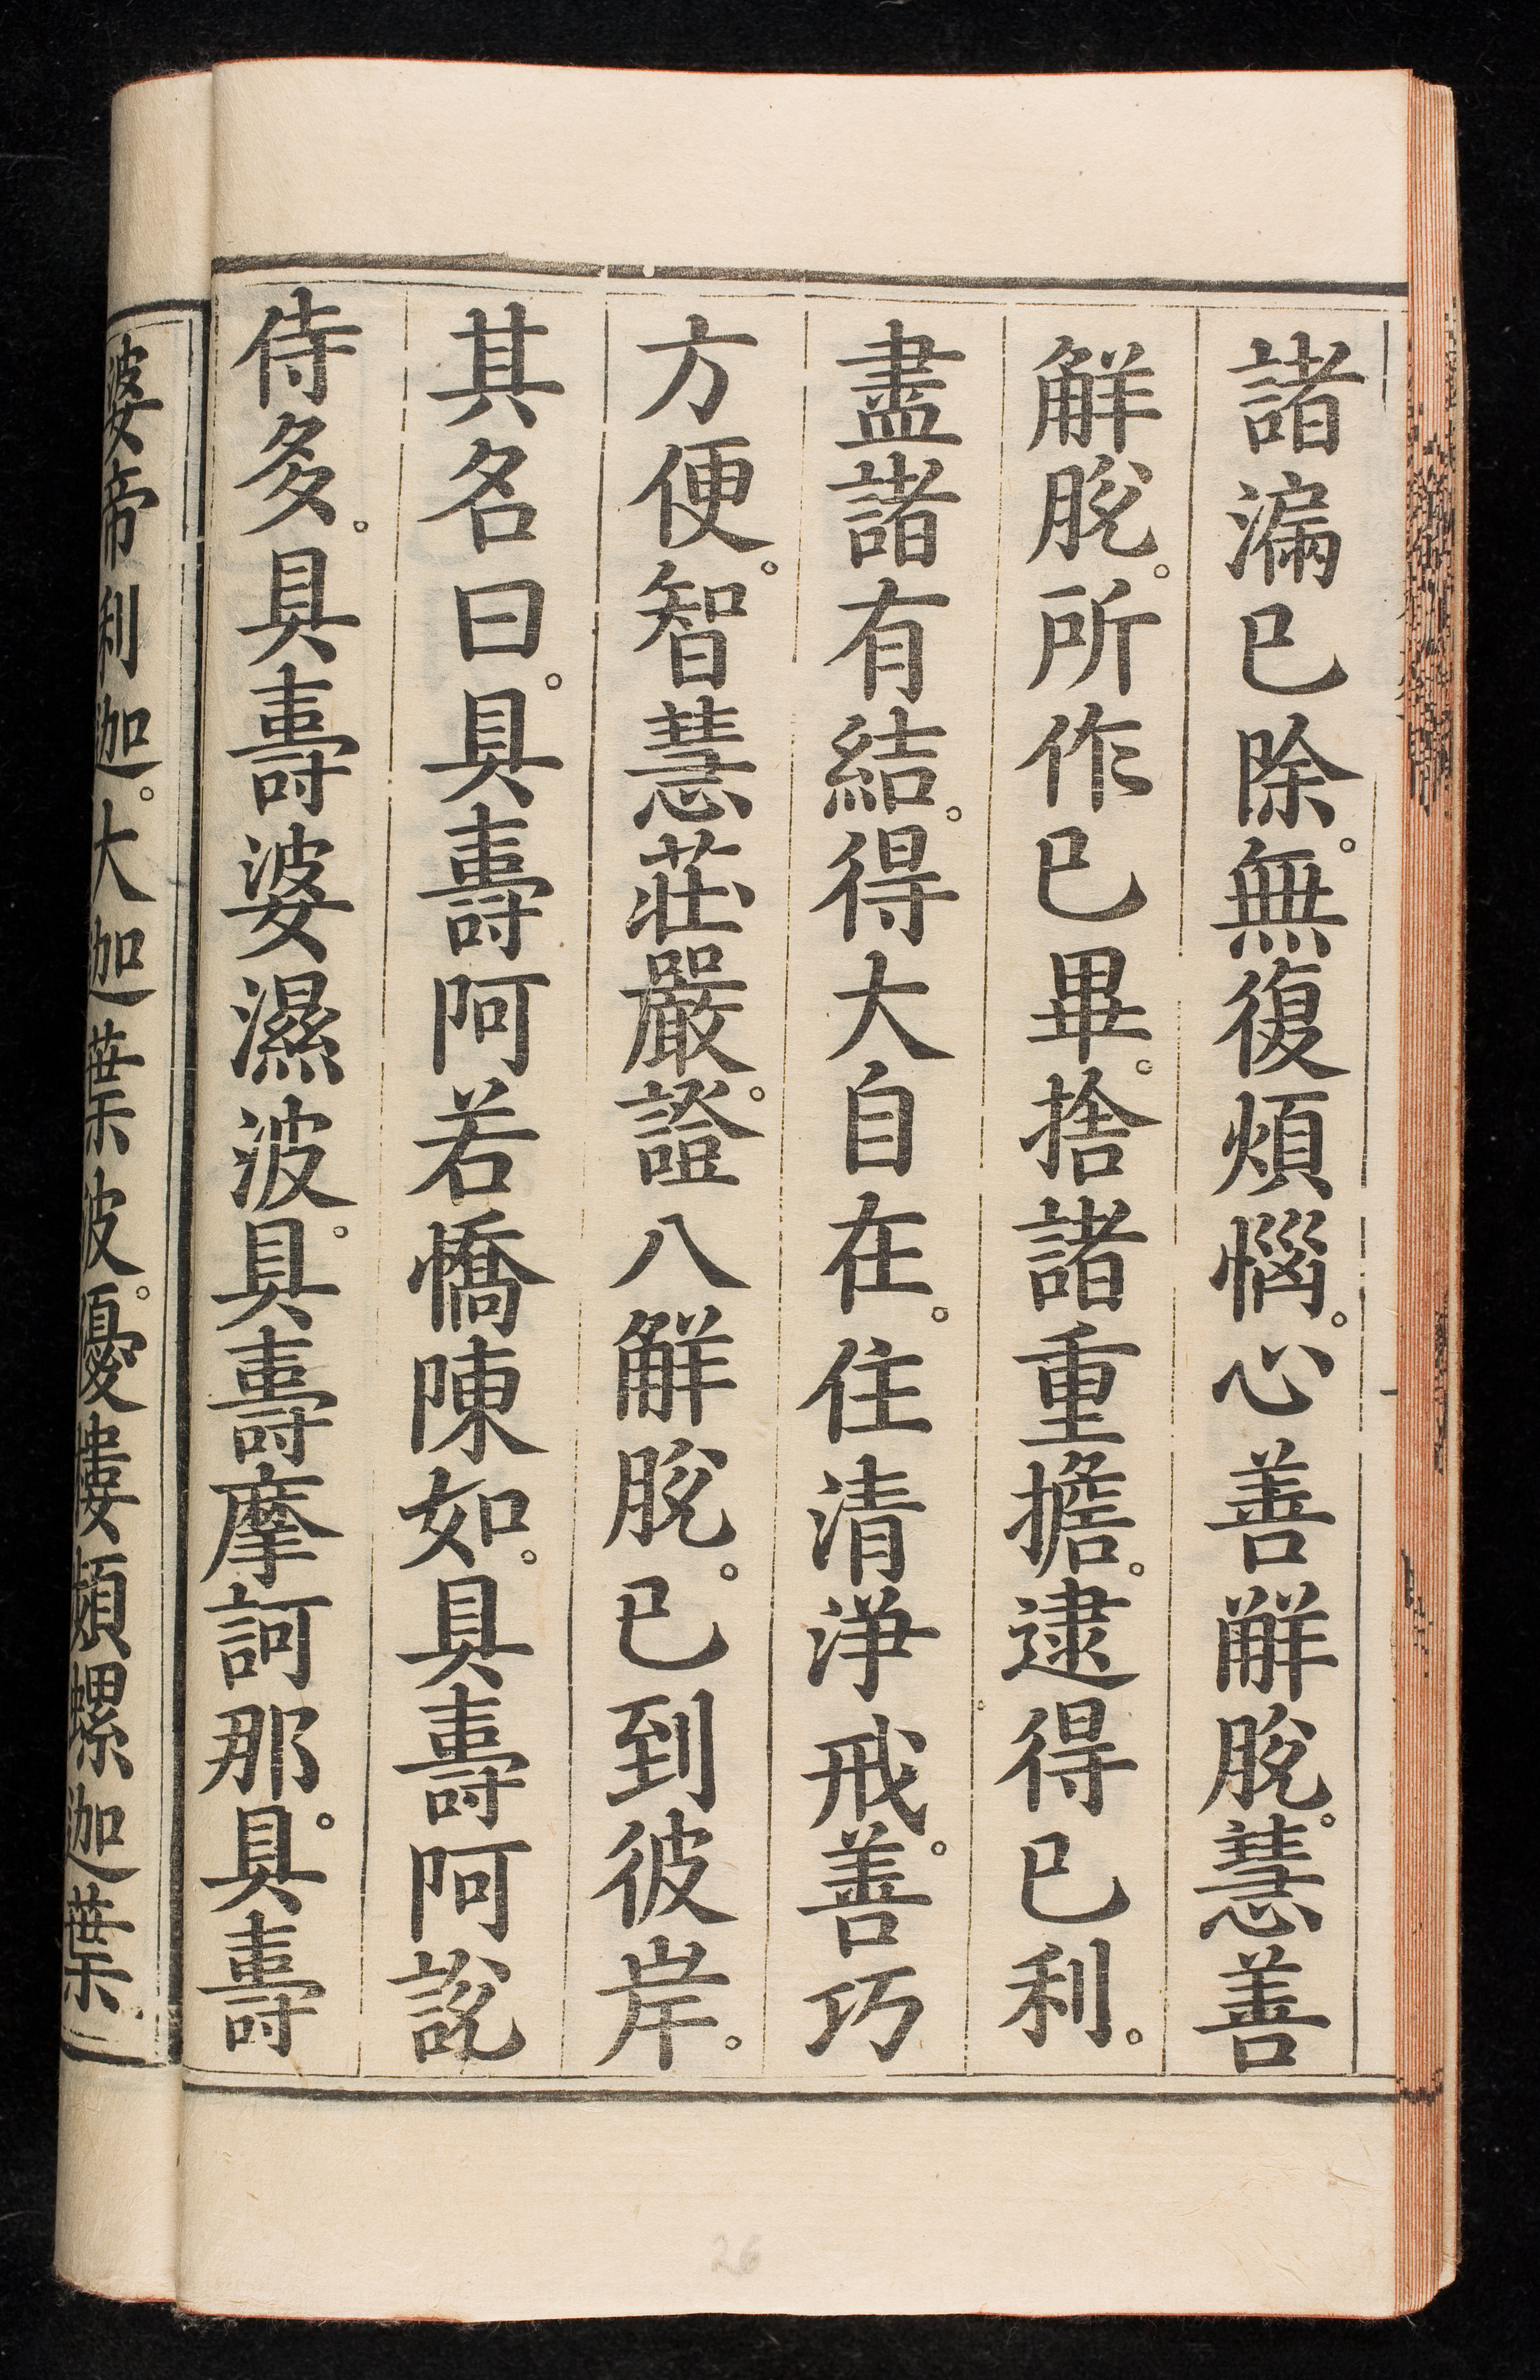 諸漏已除。無復煩惱。心善解脫。慧善
解脫。所作已畢。捨諸重擔。逮得已利。
盡諸有結。得大自在。住清淨戒。善巧
方便。智慧莊嚴。證八解脫。已到彼岸。
其名曰。具壽阿若憍陳如。具壽阿說
侍多。具壽婆濕波。具壽摩訶那。具壽
婆帝利迦。大迦葉波。優樓頻螺迦葉
26